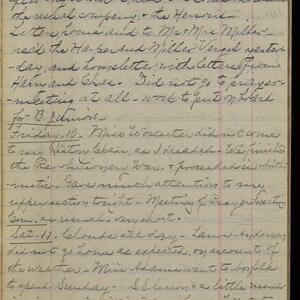 the usual company - the
Letters home and to Mr + Mrs Miller
rec'd the Harpers and Miller
day, and home letter with letters from
Harry and Chas. Did not go to prayer
meeting at all - work to put
for B. Juniors.
Friday, 10. Miss Worcester did not come
to my History class, as I dreaded - We finished
the Re- War. + proceeded in Arith-
metic. Gave much attention to my
upper section tonight - Meeting of Prayer Meeting
Com. as usual very short.
Sat. 11. Clouds all day - Anderson
did not go home as expected, on account of
the weather - Miss Adams went to Norfolk
to spend Sunday - S. S. lesson + a little